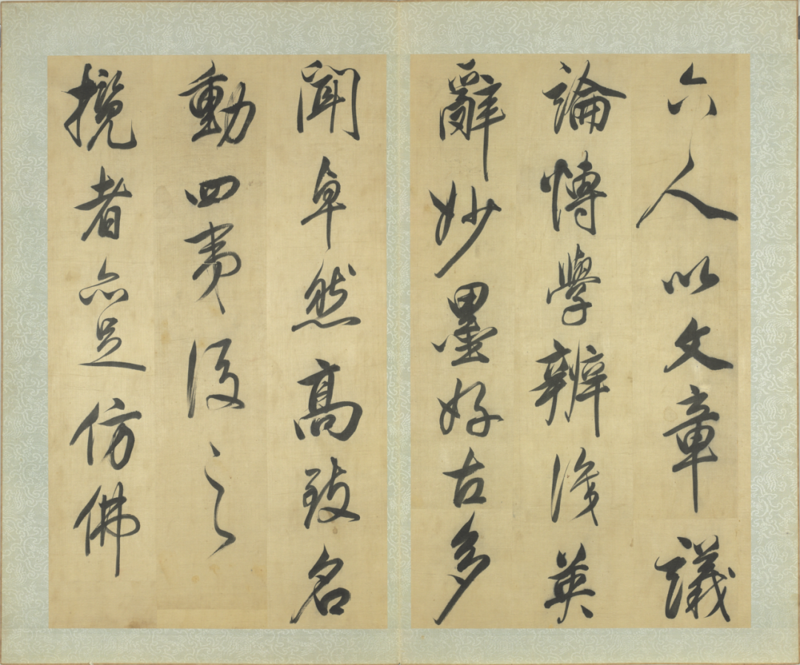 六人以文章議
論愽學辨識英
辭妙墨好古多
聞卓然高致名
動四夷後之
攬者亦足仿佛